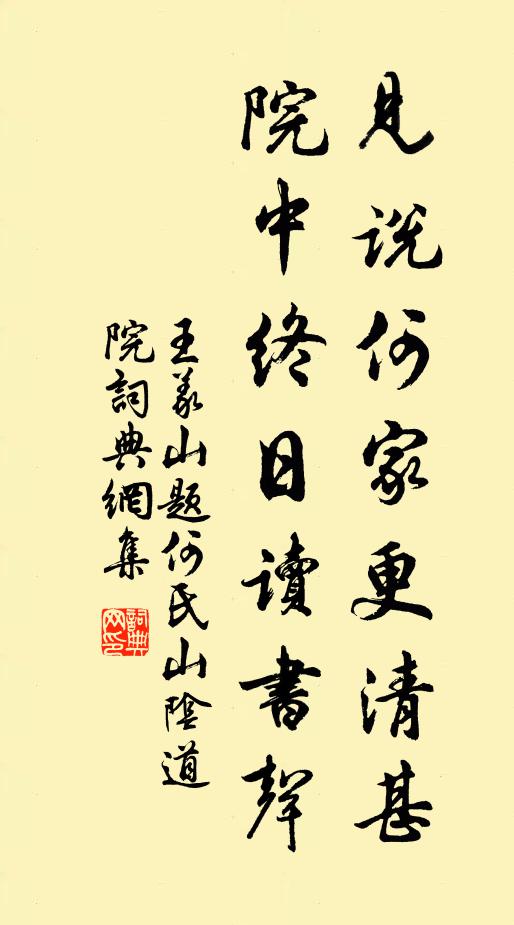 見説何家更清甚
院中終日讀書聲
王義山題何氏山陰道
院詞典網集
詞典網印